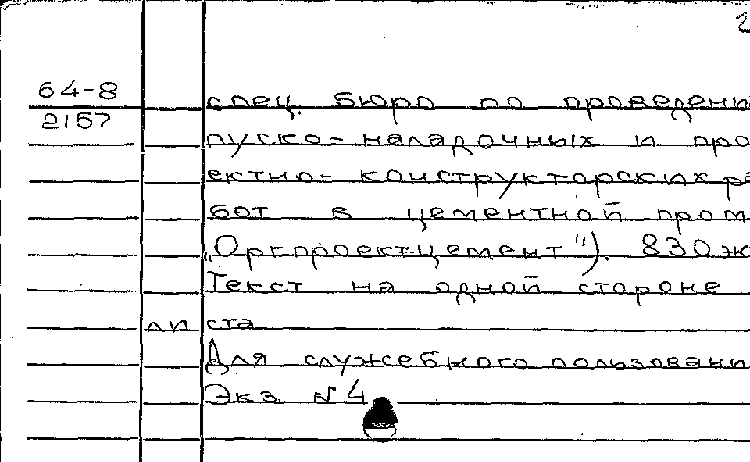 2
64-8
2157
спец. бюро по проведени
пуско-наладочных и про
ектно-конструкторских ра
бот в цементной пром
"Оргпроектцемент"). 830 ж
Текст на одной стороне
ли ста
Для служебного пользовани
Экз №4